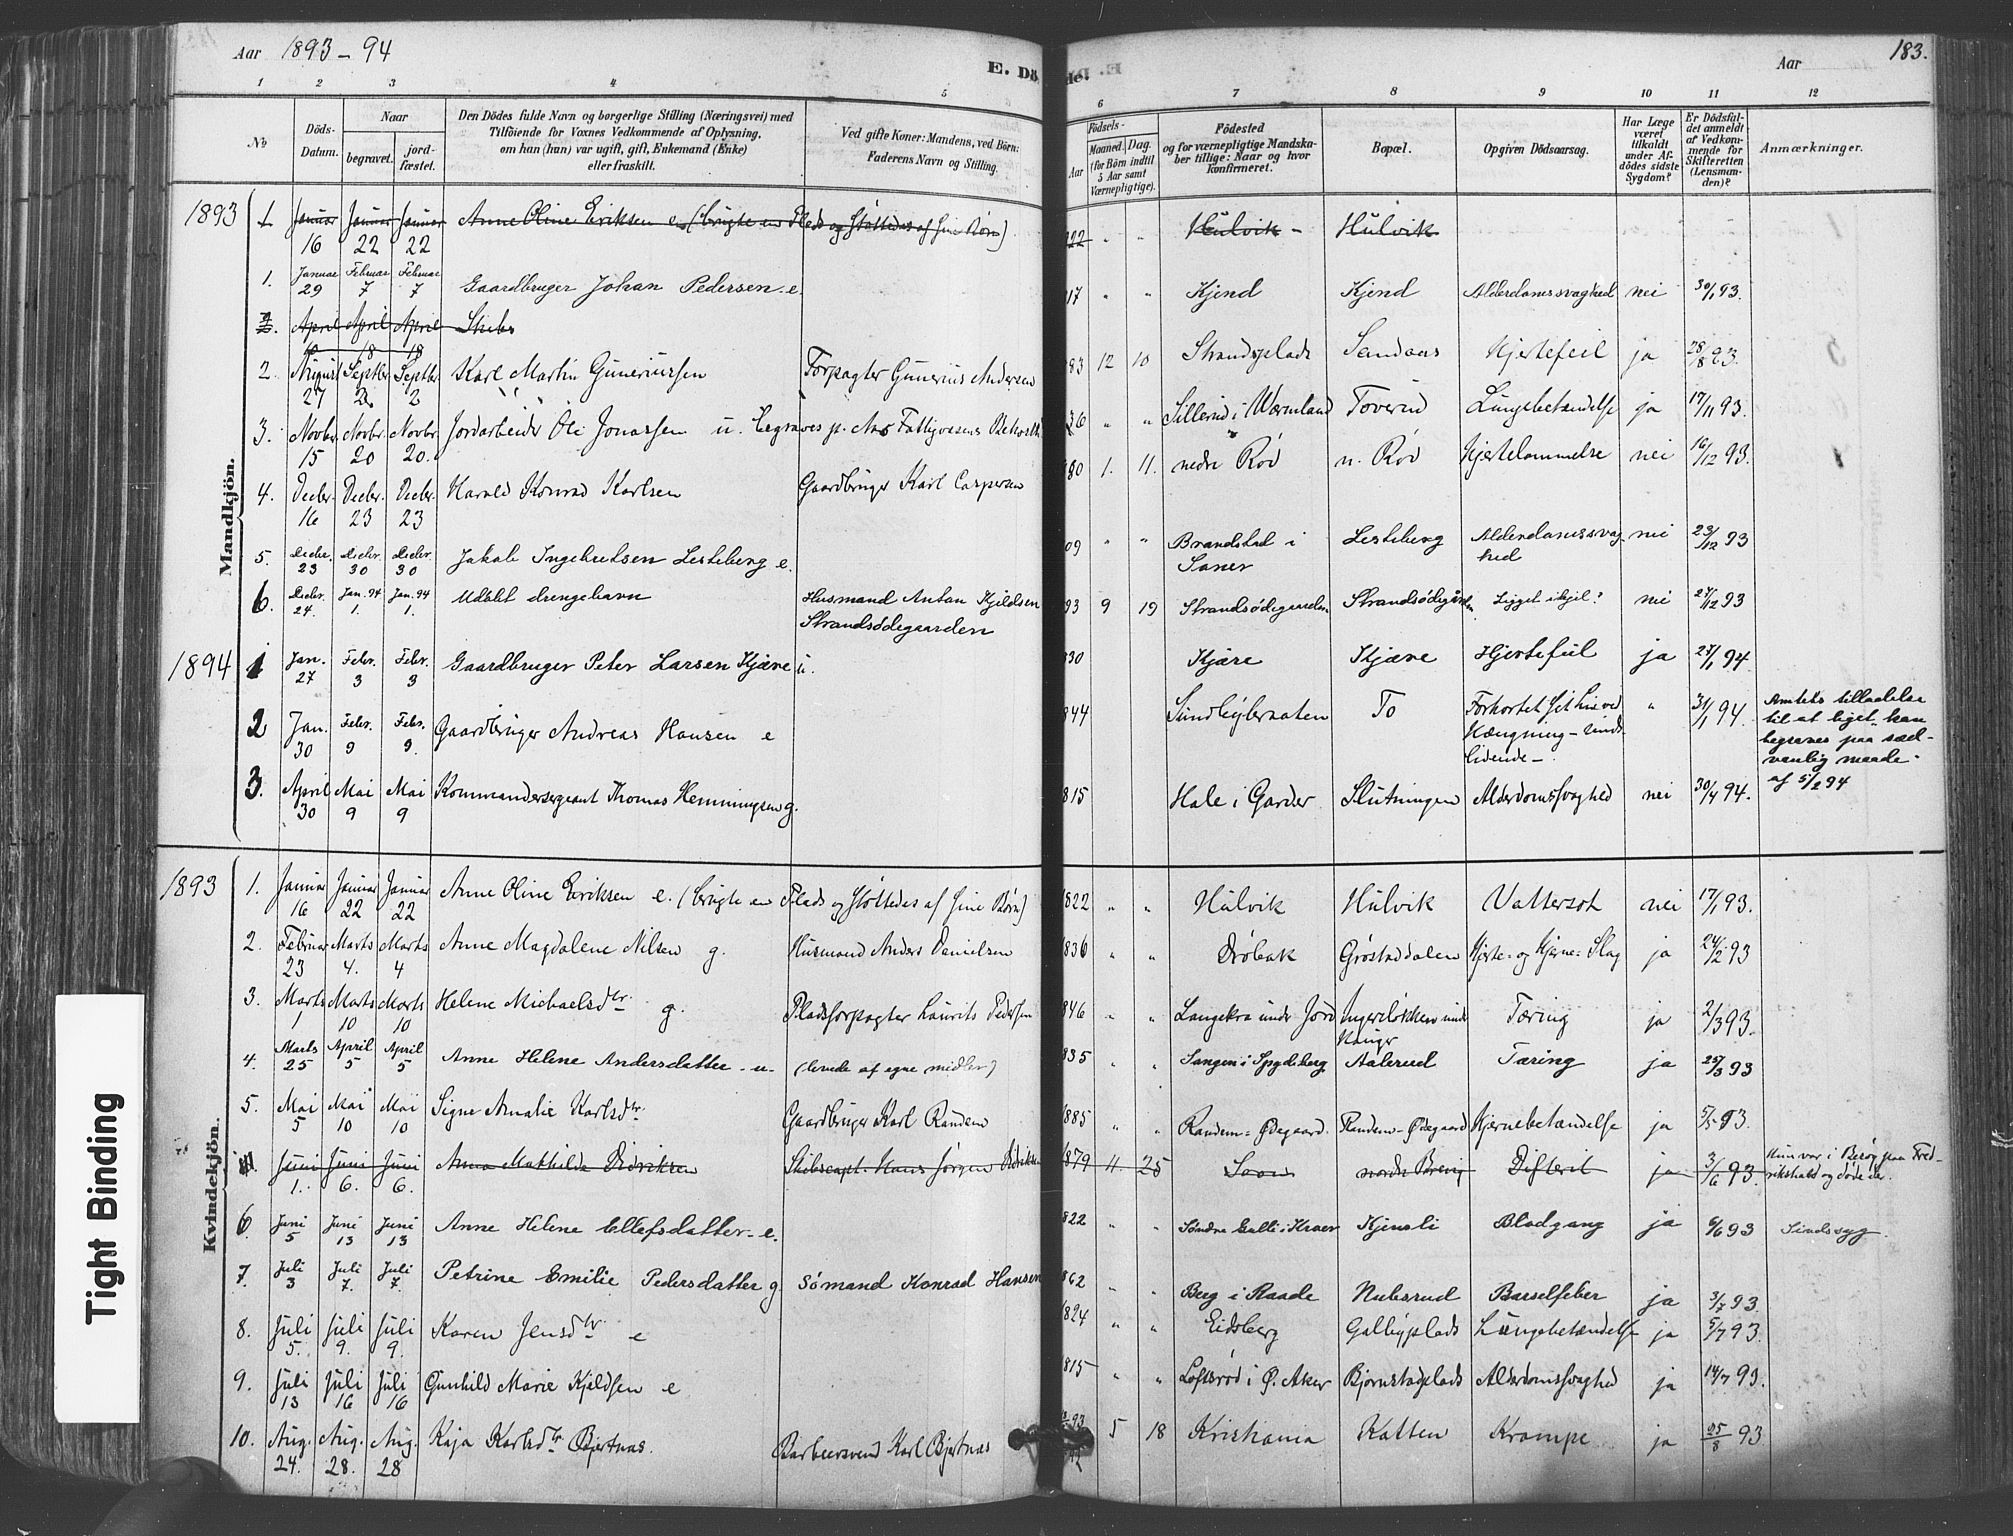 Aar 1893-94
E. Dö de.
Aar
183.
1 2 3 4 5 6 7 8 9 10 11 12
No
Döds-Datum.
Naar
begravet.
jord-fæstet.
Den Dödes fulde Navn og borgerlige Stilling (Næringsvei) med
Tilföiende for Voxnes Vedkommende af Oplysning,
om han (hun) var ugift, gift, Enkemand (Enke)
eller fraskilt.
Ved gifte Koner: Mandens, ved Börn:
Faderens Navn og Stilling.
Födsels-
Aar
Maaned. Dag.
(for Börn indtil
5 Aar samt
Værnepligtige).
Födested
og for værnepligtige Mandska-
ber tillige: Naar og hvor
konfirmeret.
Bopæl.
Opgiven Dödsaarsag.
Har Læge
været
tilkaldt
under Af-
dödes sidste
Sygdom?
Er Dödsfal-
det anmeldt
af Vedkom-
mende for
Skifteretten
(Lensman-
den)?
Anmærkninger.
Mandkjön.
1893 1. Januar 16 Januar 22 Januar 22 Anne Oline Eriksen e (brugte en Plads og støttedes af sine Børn) 22 " " Hulvik - Hulvik
1. Januar 29 Februar 7 Februar 7 Gaardbruger Johan Pedersen e. 17 " " Kjend Kjend Alderdomssvaghed nei 30/1 93.
2. April 10 April 18 April 18 Skibs
2. August 27 Septbr 2. Septbr. 2 Karl Martin Guneriussen Forpagter Gunerius Andersen 93 12 10 Strandsplads Sandaas Hjertefeil ja 28/8 93.
3. Novbr. 15 Novbr. 20 Novbr. 20. Jordarbeider Ole Jonassen u. begraves p. Aas Fattigvæsens Bekostn 36 " " Sillerud i Wærmland Toverud Lungebetændelse ja 17/11 93.
4. Decbr. 16 Decbr. 23 Decbr. 23 Harald Konrad Karlsen Gaardbruger Karl Caspersen 80 1. 11. nedre Röd n. Röd Hjertelammelse nei 16/12 93.
5. Decbr. 23 Decbr. 30 Decbr. 30 Jakob Ingebretsen Lesteberg e. 09 " " Brandstad i Saner Lesteberg Alderdomssvaghed nei 23/12 93
6. Decbr. 24. Jan. 94 1. Jan. 94 1. Udøbt drengebarn Husmand Anton Kjeldsen Strandsödegaarden 93 9 19 Strandsödegaarden Strandsödegården Ligget ihjel? nei 27/12 93
1894 1 Jan. 27 Febr. 3 Febr. 3 Gaardbruger Peter Larsen Kjære u. 830 Kjære Kjære Hjertefeil ja 27/1 94.
2 Jan. 30 Febr. 9 Febr. 9. Gaardbruger Andreas Hansen e 844 Sundbybraaten To Forkortet sit Liv ved Hængning - sinds lidende -. " 31/1 94. Amtets tilladelse til at liget kan begraves paa sæd- vanlig maade af 5/2 94
3. April 30 Mai 9 Mai 9 Kommandersergeant Thomas Hemmingsen g. 815 Hole i Garder Slutningen Alderdomssvaghed nei 30/4 94.
Kvindekjön.
1893 1. Januar 16 Januar 22 Januar 22 Anne Oline Eriksen e. (brugte en Plads og støttedes af sine Børn) 1822 " " Hulvik Hulvik Vattersot nei 17/1 93.
2. Februar 23 Marts 4. Marts 4 Anne Magdalene Nilsen g. Husmand Anders Danielsen 836 " " Dröbak Gröstaddalen Hjerte- og Hjerne-Slag ja 24/2 93
3. Marts 1 Marts 10 Marts 10 Helene Michaelsdtr. g. Pladsforpagter Laurits Pedersen 846 " " Langekra under Jord Ingersløkken under Hauger Tæring ja 2/3 93.
4. Marts 25 April 5 April 5 Anne Helene Andersdatter - u - (levede af egne midler) 835 " " Sangen i Spydeberg Aalerud Tæring ja 25/3 93
5. Mai 5 Mai 10 Mai 10 Signe Amalie Karlsdtr. Gaardbruger Karl Randem 1885 " " Randem-Ödegaard. Randem-Ödegaard Hjernebetændelse ja 5/5 93.
Juni 1. Juni 6. Juni 6. Anna Mathilde Didriksen Skibscapt. Hans Jørgen Didriksen 1879 11. 25 Soon nordre Brevig Difterit ja 3/6 93. Hun var i Besøg paa Fred- rikshald og døde der.
6 Juni 5 Juni 13 Juni 13 Anne Helene Ellefsdatter - e. 822 " " Söndre Gulli i Kraer Kjensli Blodgang ja 6/6 93 Sindssyg.
7. Juli 3 Juli 7. Juli 7. Petrine Emilie Pedersdatter g. Sömand Konrad Hansen 862 " " Berg i Raade Nubsrud Barselfeber ja 3/7 93.
8. Juli 5. Juli 9. Juli 9. Karen Jensdtr e 1824 " " Eidsberg Galbyplads Lungebetændelse ja 5/7 93.
9. Juli 13 Juli 16 Juli 16 Gunhild Marie Kjeldsen e 815 " " Loftsröd i Ø. Aker Bjørnstadplads Alderdomssvaghed ja 14/7 93.
10. Aug. 24. Aug. 28. Aug. 28 Kaja Karlsdtr Bjertnæs. Barbeersvend Karl Bjertnæs 93 5 18 Kristiania Katten Krampe ja 25/8 93
Tight Binding